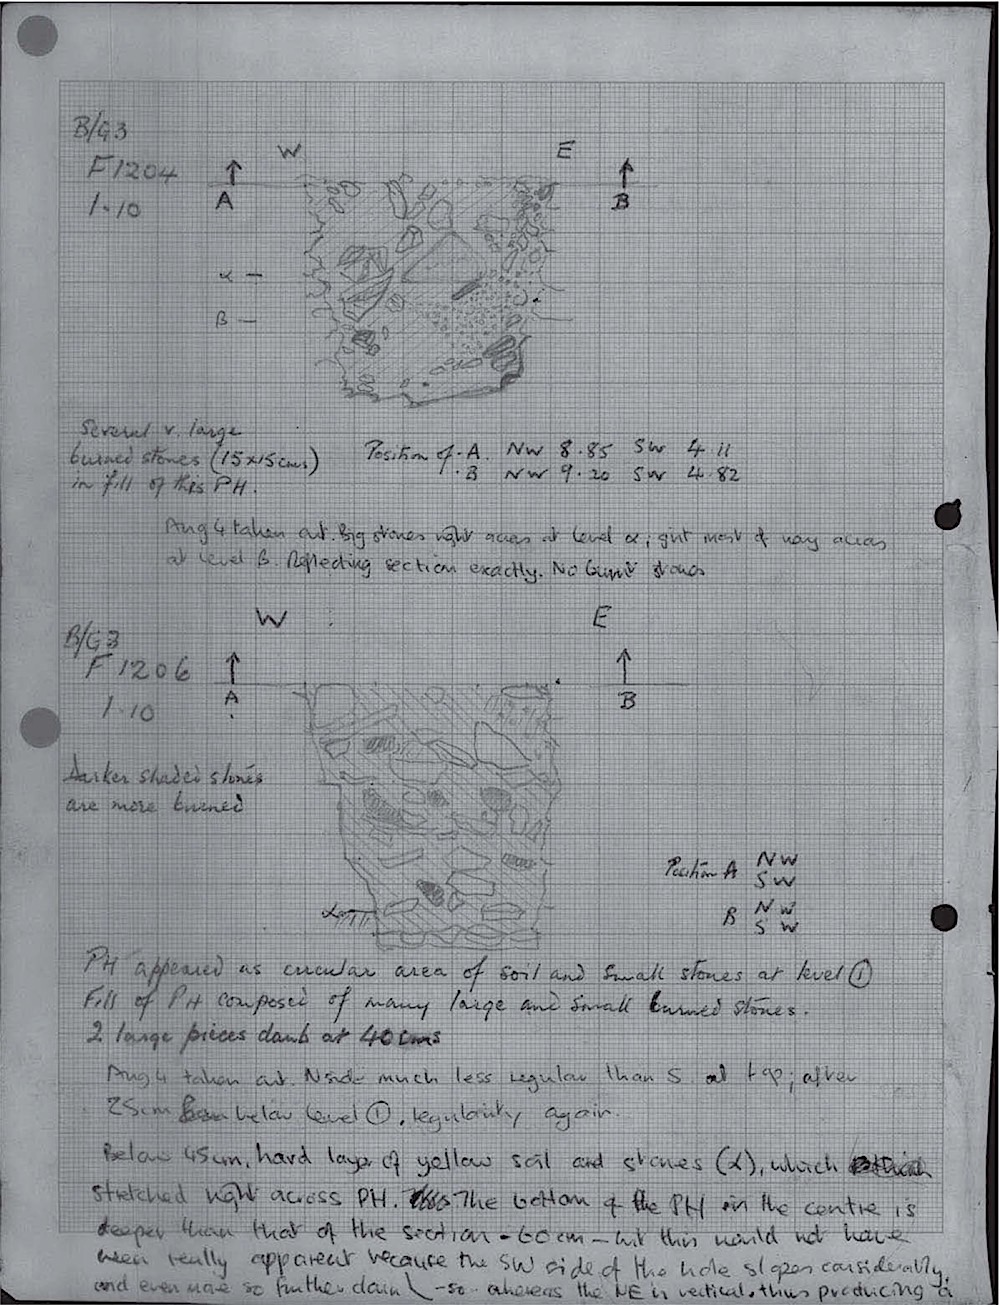 B/G3
F1204
1.10
W
E
A
B
α –
B –
Several v. large
burned stones (15x15cms)
in fill of this PH.
Position of .A. NW 8.85 SW 4.11
.B NW 9.20 SW 4.82
Aug 4 taken out. Big stones right across at level α; grit most of way across
at level B. Reflecting section exactly. No burnt stones
W
E
B/G3
F1206
1.10
A
B
Darker shaded stones
are more burned
Position A NW
SW
B NW
SW
α
PH appeared as circular area of soil and small stones at level ①
Fill of PH composed of many large and small burned stones.
2 large pieces daub at 40 cms
Aug 4 taken out. N side much less regular than S. at top; after
25cm below level ①, regularity again.
Below 45cm, hard layer of yellow soil and stones (α), which
stretched right across PH. The bottom of the PH in the centre is
deeper than that of the section - 60cm - but this would not have
been really apparent because the SW side of the hole slopes considerably,
and even more so further down \ - so - whereas the NE is vertical, thus producing a